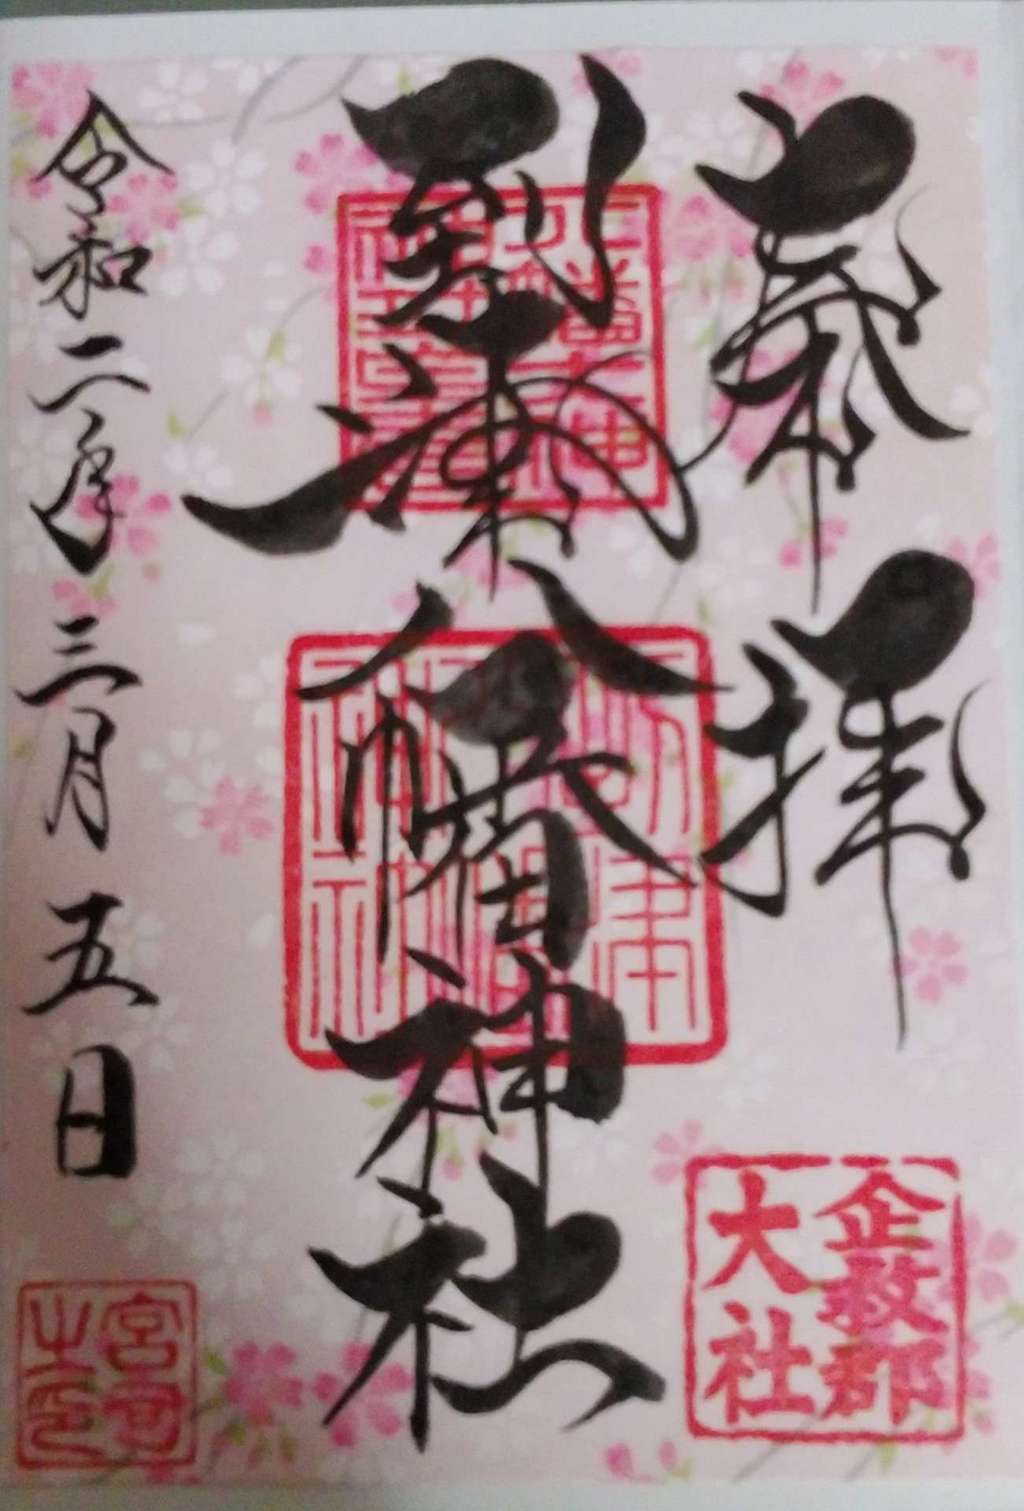 奉拝
到津八幡神社
令和二年三月五日
企救郡
大社
宮司
之印